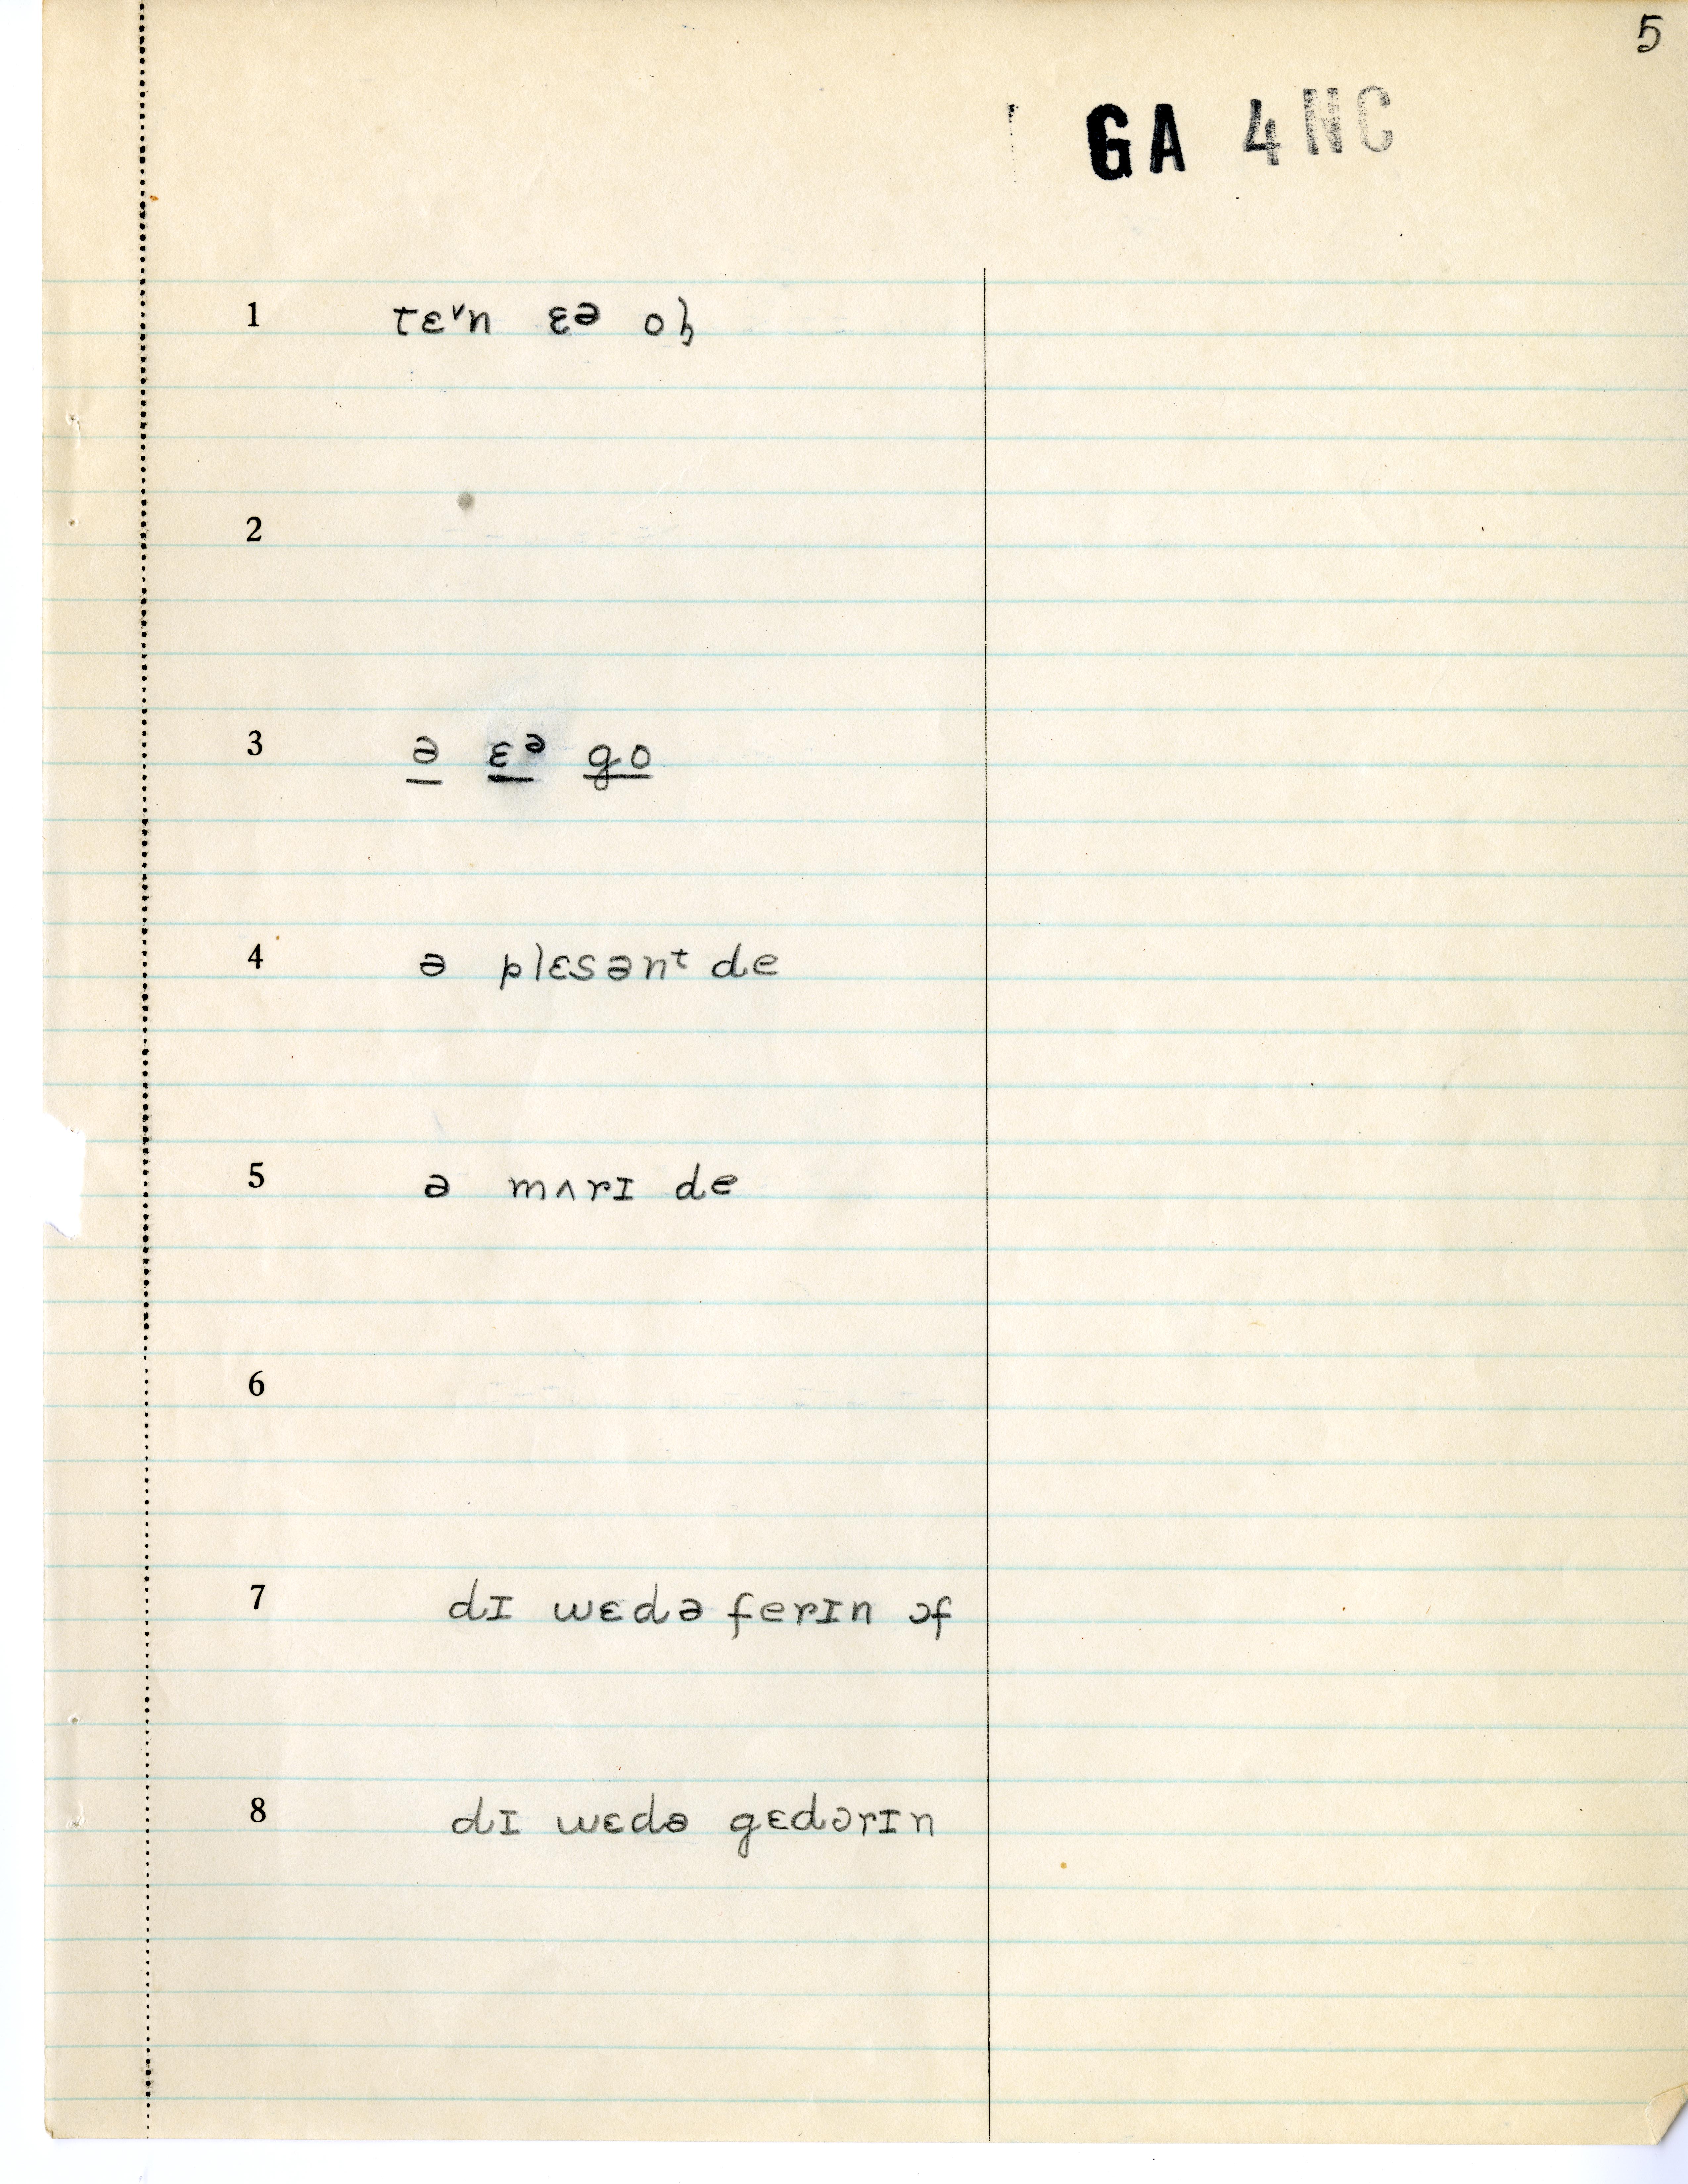 5
GA 4NC
1 tɛᵛn ɛə
2
3 ə ɛᵊ go
4 ə plɛsənᵗ de
5 ə mʌrɪ de
6
7 dɪ wɛdə ferɪn ɔf
8 dɪ wɛdə gɛdərɪn